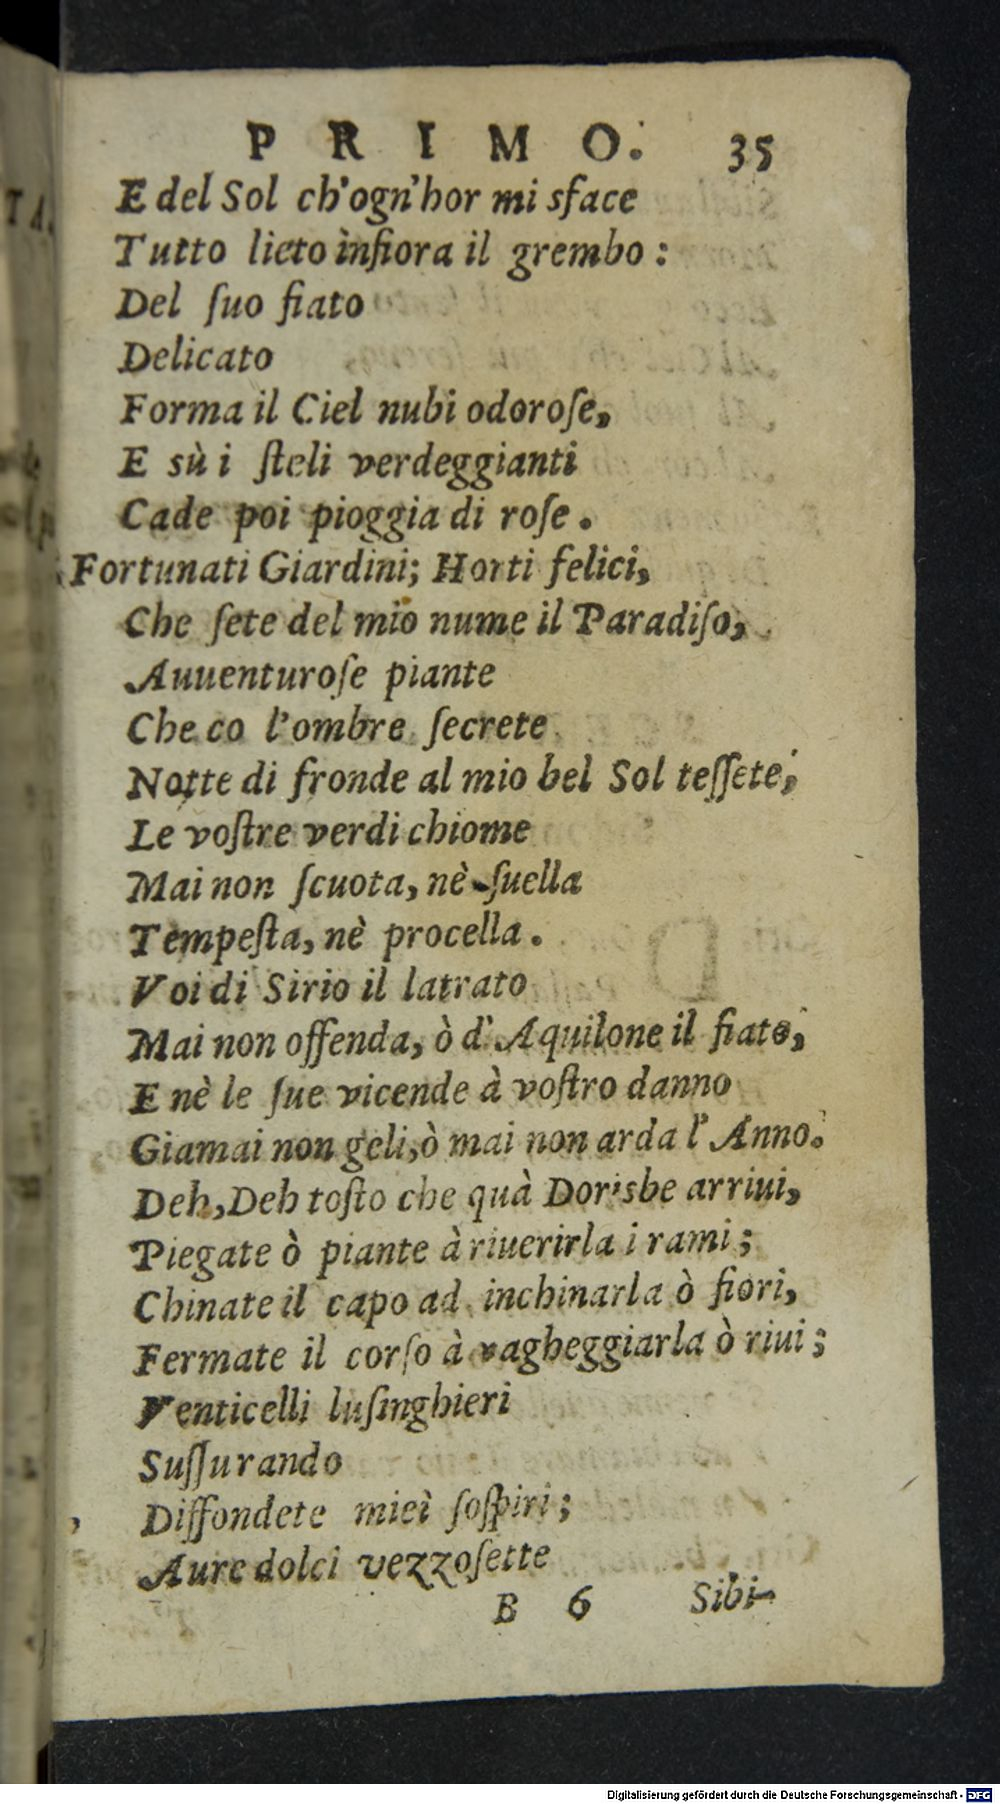 PRIMO. 35
E del Sol ch'ogn'hor mi sface
Tutto lieto ìnfiora il grembo :
Del ſuo fiato
Delicato
Forma il Ciel nubi odoroſe,
E sù i ſteli verdeggianti
Cade poi pioggia di roſe.
Fortunati Giardini; Horti felici,
Che ſete del mio nume il Paradiſo,
Auuenturoſe piante
Che co l'ombre ſecrete
Notte di fronde al mio bel Sol teſſete;
Le voſtre verdi chiome
Mai non ſcuota, nè ſuella
Tempeſta, nè procella.
Voi di Sirio il latrato
Mai non offenda, ò d'Aquilone il fiato,
E nè le ſue vicende à voſtro danno
Giamai non geli, ò mai non arda l'Anno.
Deh, Deh toſto che quà Dorisbe arriui,
Piegate ò piante à riuerirla i rami ;
Chinate il capo ad inchinarla ò fiori,
Fermate il corſo à vagheggiarla ò riui ;
Venticelli luſinghieri
Suſſurando
Diffondete mieì ſoſpiri ;
Aure dolci vezzoſette
B 6 Sibi-
Digitalisierung gefördert durch die Deutsche Forschungsgemeinschaft - DFG